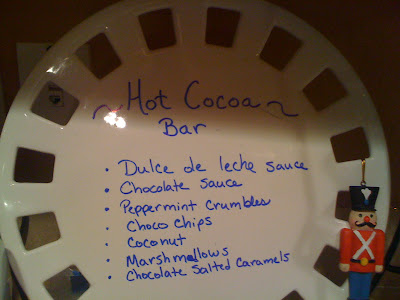 ~ Hot Cocoa ~
Bar
• Dulce de leche sauce
• Chocolate sauce
• Peppermint Crumbles
• Choco chips
• Coconut
• Marshmallows
• Chocolate Salted Caramels